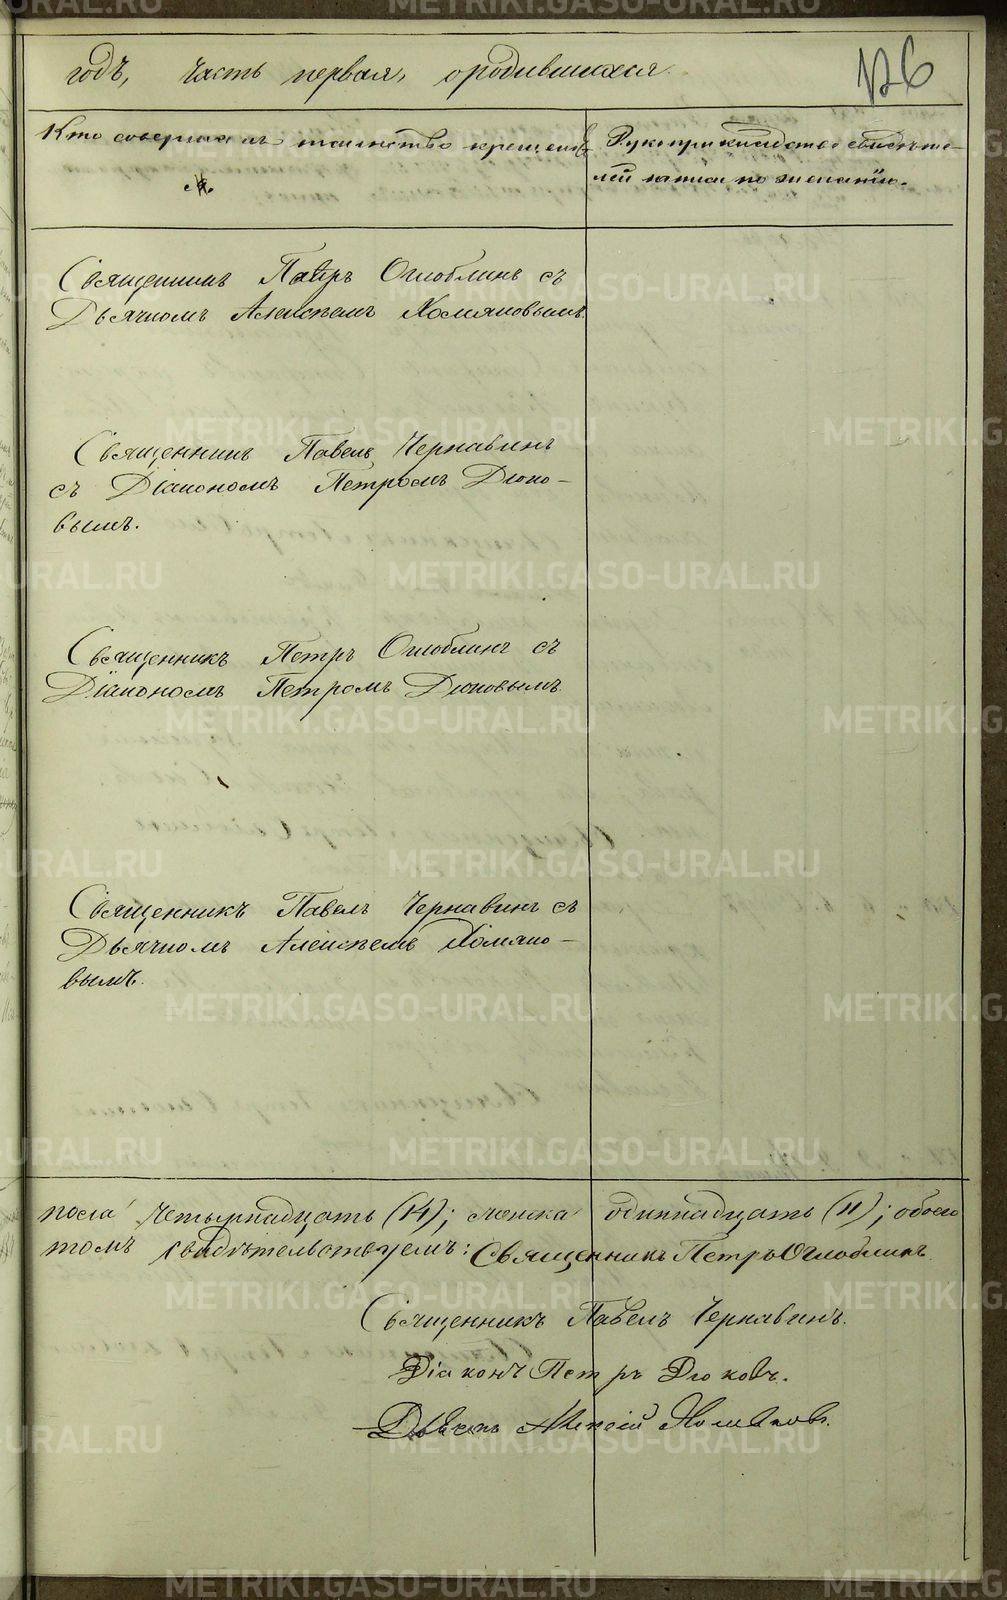 годъ, часть первая, о родившихся.
126
Кто совершалъ таинство крещенія.
Рукоприкладство свидѣте-
лей записи по желанію.
Священникъ Петръ Оглоблинъ съ
Дьячкомъ Алексѣемъ Хомяковымъ.
Священникъ Павелъ Чернавинъ
съ Діакономъ Петромъ Дюко-
вымъ.
Священникъ Петръ Оглоблинъ съ
Діакономъ Петромъ Дюковымъ.
Священникъ Павелъ Чернавинъ съ
Дьячкомъ Алексѣемъ Хомяко-
вымъ.
пола четырнадцать (14); женска одиннадцать (11); обоего
томъ свидѣтельствуемъ: Священникъ Петръ Оглоблинъ.
Священникъ Павелъ Чернавинъ.
Діаконъ Петръ Дюковъ.
Дьячекъ Алексій Хомяковъ.
METRIKI.GASO-URAL.RU